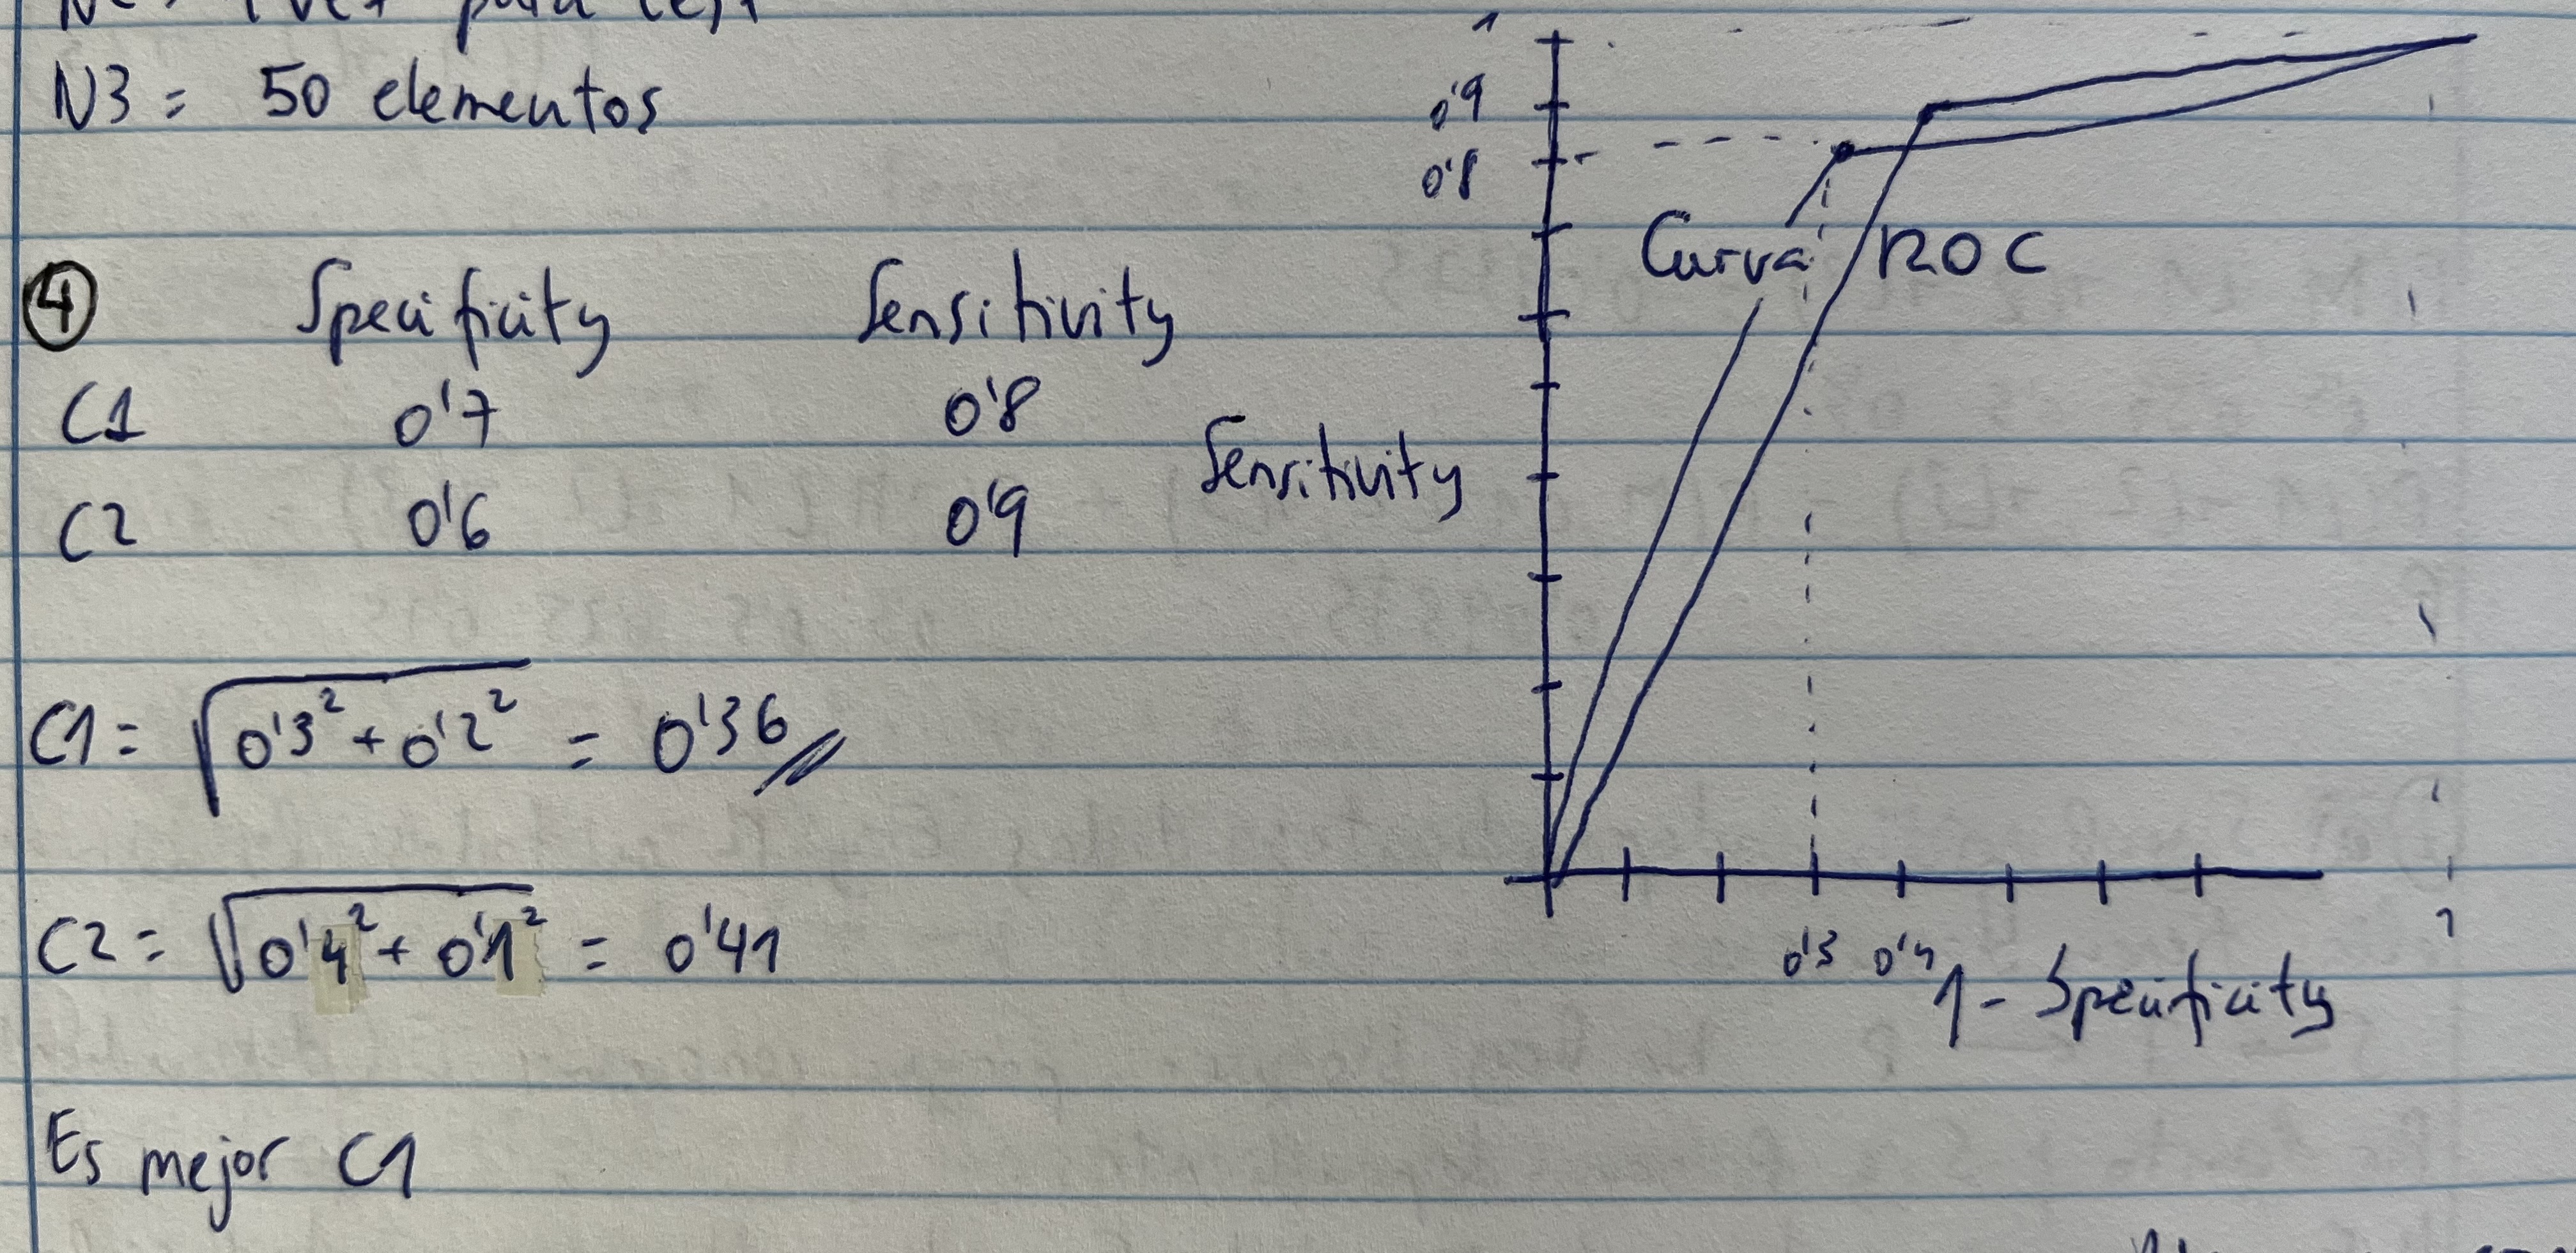 N3 = 50 elementos
④ Specificity Sensitivity
C1 0'7 0'8
C2 0'6 0'9
C1 = √0'3² + 0'2² = 0'36
C2 = √0'4² + 0'1² = 0'41
Es mejor C1
1
0'9
0'8
Curva ROC
Sensitivity
0'3 0'4 1
1 - Specificity